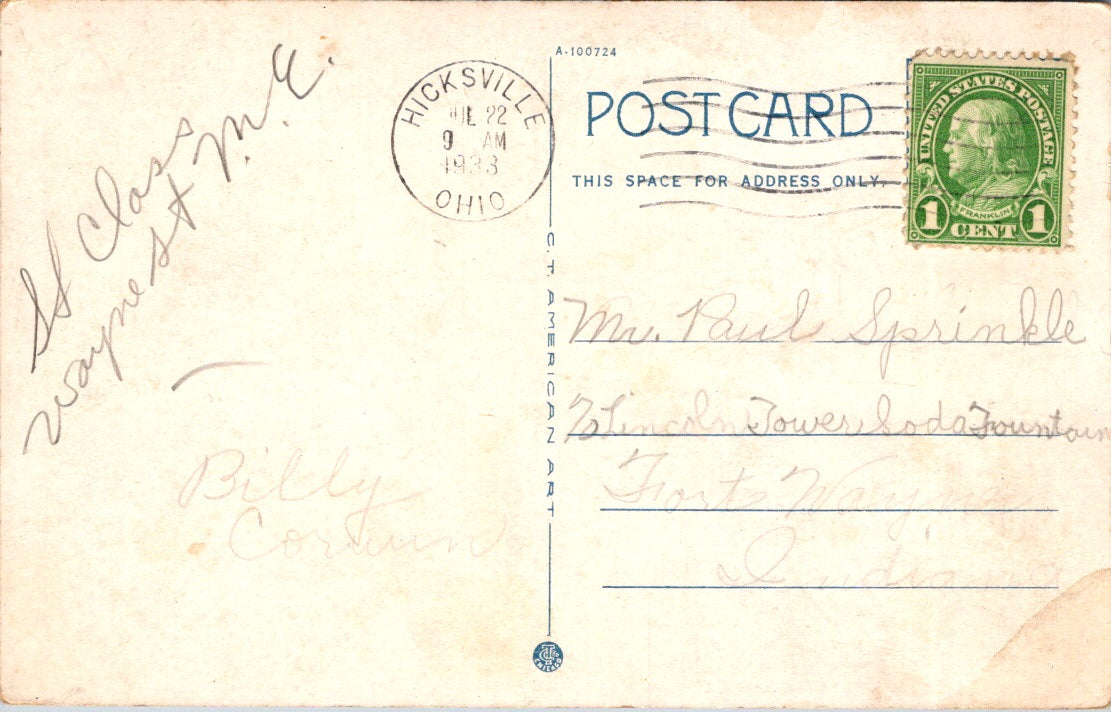 A-100724
HICKSVILLE
JUL 22
9 AM
1933
OHIO
POST CARD
THIS SPACE FOR ADDRESS ONLY.
UNITED STATES POSTAGE
FRANKLIN
1 CENT 1
SS Class
Wayne St M. E.
Billy
Corwin
C.T. AMERICAN ART
Mr. Paul Sprinkle
℅ Lincoln Tower Soda Fountain
Fort Wayne
Indiana
CHICAGO